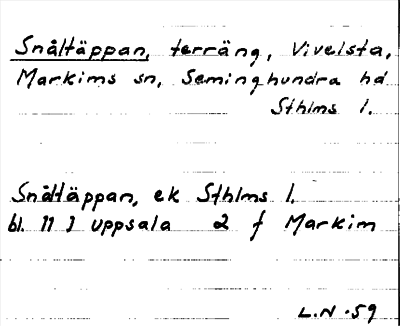 Snåltäppan, terräng, Vivelsta,
Markims sn, Seminghundra hd
Sthlms l.
Snåltäppan, ek Sthlms l.
bl. 11 I Uppsala 2 f Markim
L.N. -59